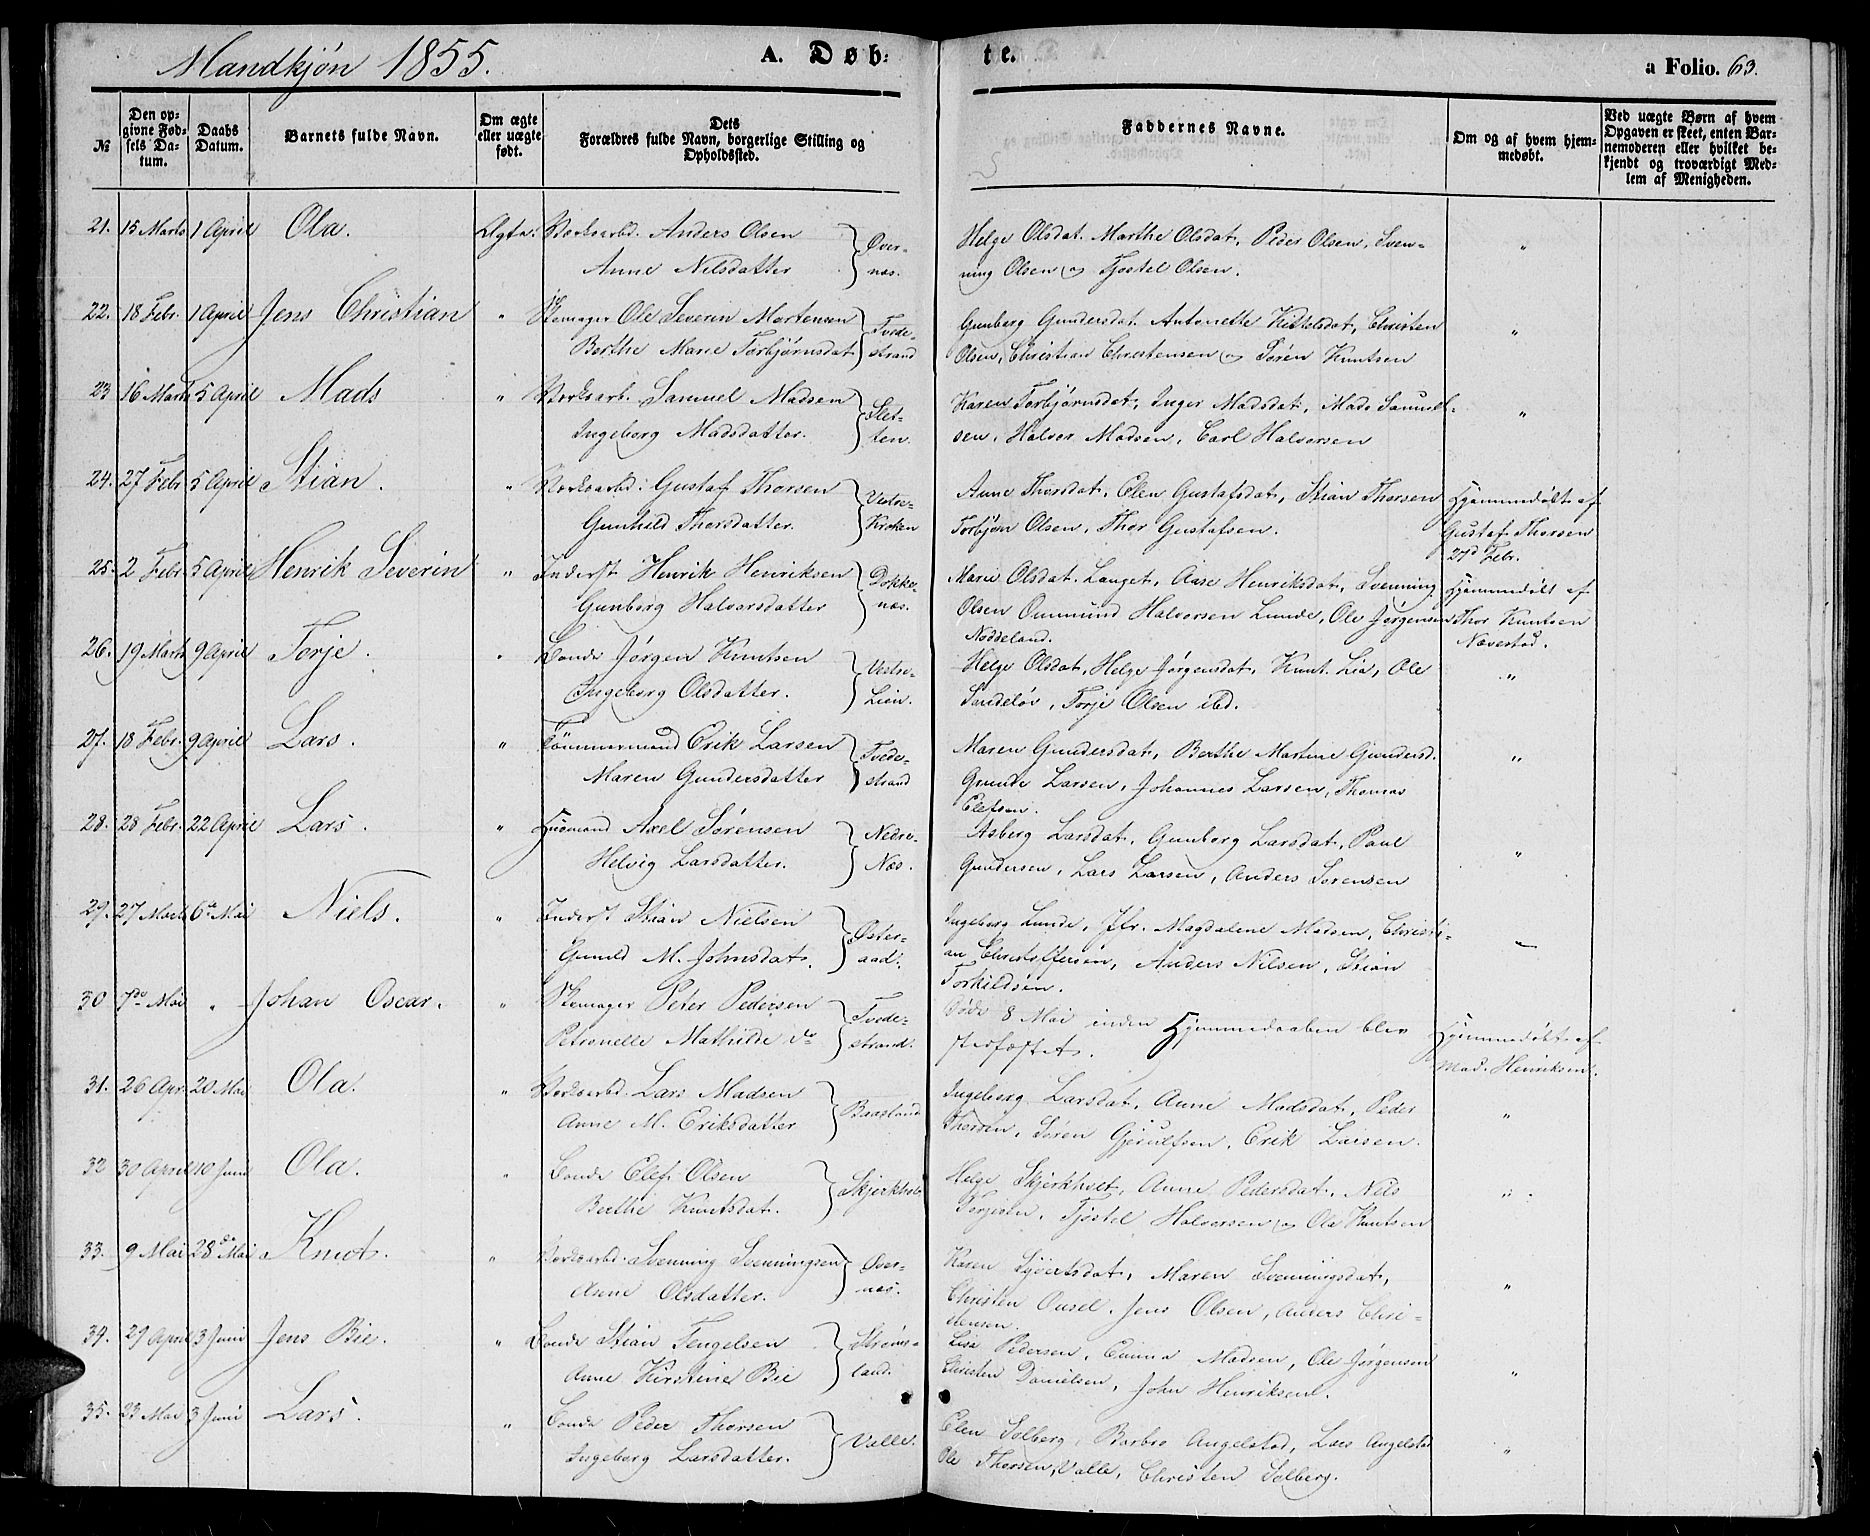 Mandkjön 1855.
A. Døb-
te.
a Folio. 63.
№
Den op-
givne Fød-
sels Da-
tum.
Daabs
Datum.
Barnets fulde Navn.
Om ægte
eller uægte
født.
Dets
Forældres fulde Navn, borgerlige Stilling og
Opholdssted.
Faddernes Navne.
Om og af hvem hjem-
medøbt.
Ved uægte Børn af hvem
Opgaven er skeet, enten Bar-
nemoderen eller hvilket be-
kjendt og troværdigt Med-
lem af Menigheden.
21. 15 Marts 1 April Ola. Ægte. Værksarbd. Anders Olsen
Anne Nilsdatter
Øver-
næs.
Helge Olsdat. Marthe Olsdat, Peder Olsen, Sven-
ning Olsen og Tjostel Olsen.
"
22. 18 Febr. 1 April Jens Christian " Skomager Ole Severin Mortensen
Berthe Marie Torbjørnsdat
Tvede-
strand
Gunborg Gundersdat. Antonette Kittelsdat, Christen
Olsen, Christian Christensen og Sören Knutsen
"
23 16 Marts 5 April Mads " Værksarb. Samuel Madsen
Ingeborg Madsdatter.
Slet-
ten.
Karen Torbjörnsdat, Inger Madsdat, Mads Samuel-
sen, Halvor Madsen, Carl Halvorsen
"
24. 27 Febr 5 April Stian. " Værksarbd: Gustaf Thorsen
Gunhild Thorsdatter.
Vestre-
Kroken
Anne Thorsdat, Elen Gustafsdat, Stian Thorsen
Torbjörn Olsen, Thor Gustafsen.
Hjemmedöbt af
Gustaf Thorsen
27d Febr.
25. 2 Febr 5 April Henrik Severin " Inderst Henrik Henriksen
Gunborg Halvorsdatter
Dokke-
næs.
Marie Olsdat. Langet, Aase Henriksdat, Svenning
Olsen Ommund Halvorsen Lunde, Ole Jørgensen
Nøddeland.
Hjemmedöbt af
Thor Knutsen
Nævestad.
26. 19 Marts 9 April Torje. " Bonde Jørgen Knutsen
Ingeborg Olsdatter.
Vestre-
Lien.
Helge Olsdat, Helge Jørgensdat, Knut Lia, Ole
Sandelöv, Torje Olsen ibd.
"
27. 18 Febr. 9 April Lars. " Tömmermand Erik Larsen
Maren Gundersdatter
Tvede-
strand
Maren Gundersdat, Berthe Martine Gundersd.
Gunde Larsen, Johannes Larsen, Thomas
Elefsen.
"
28. 28 Febr. 22 April Lars. " Husmand Axel Sørensen
Helvig Larsdatter.
Nedre-
Næs.
Asberg Larsdat, Gunborg Larsdat, Paul
Gundersen, Lars Larsen, Anders Sørensen
"
29. 27 Marts 6te Mai Niels. " Inderst Stian Nielsen
Gunild M. Johnsdat.
Øster-
aad.
Ingeborg Lunde, Jfr. Magdalene Madsen, Christi-
an Christoffersen, Anders Nilsen, Stian
Torkildsen.
"
30 7de Mai " Johan Oscar. " Skomager Peter Pedersen
Petronelle Mathilde do
Tvede-
strand.
Døde 8 Mai inden Hjemmedaaben blev
stadfæstet.
Hjemmedöbt af
Mad. Henriksen.
31. 26 Apr. 20 Mai Ola. " Værksarbd. Lars Madsen
Anne M. Eriksdatter
Baasland
Ingeborg Larsdat, Anne Madsdat, Peder
Thorsen, Sören Gjerulfsen, Erik Larsen.
"
32 30 April 10 Juni Ola. " Bonde Elef Olsen
Berthe Knutsdat.
Skjerkholt
Helge Skjerkholt, Anne Pedersdat, Nils
Torjesen, Tjostel Halvorsen og Ola Knutsen
"
33. 9 Mai 28de Mai Knut. " Værksarbd. Svenning Svenningsen
Anne Olsdatter.
Øver-
næs.
Karen Syvertsdat, Maren Svenningsdat,
Christen Ousel, Jens Olsen, Anders Chri-
stensen.
"
34. 29 April 3 Juni Jens Bie. " Bonde Stian Tengelsen
Anne Kirstine Bie
Strøms-
land.
Lisa Pedersen, Emma Madsen, Ole Jørgensen
Christen Danielsen, John Henriksen.
"
35. 23 Mai 3 Juni Lars. " Bonde Peder Thorsen
Ingeborg Larsdatter.
Valle.
Elen Solberg, Barbro Angelstad, Lars Angelstad
Ole Thorsen, Valle, Christen Solberg.
"